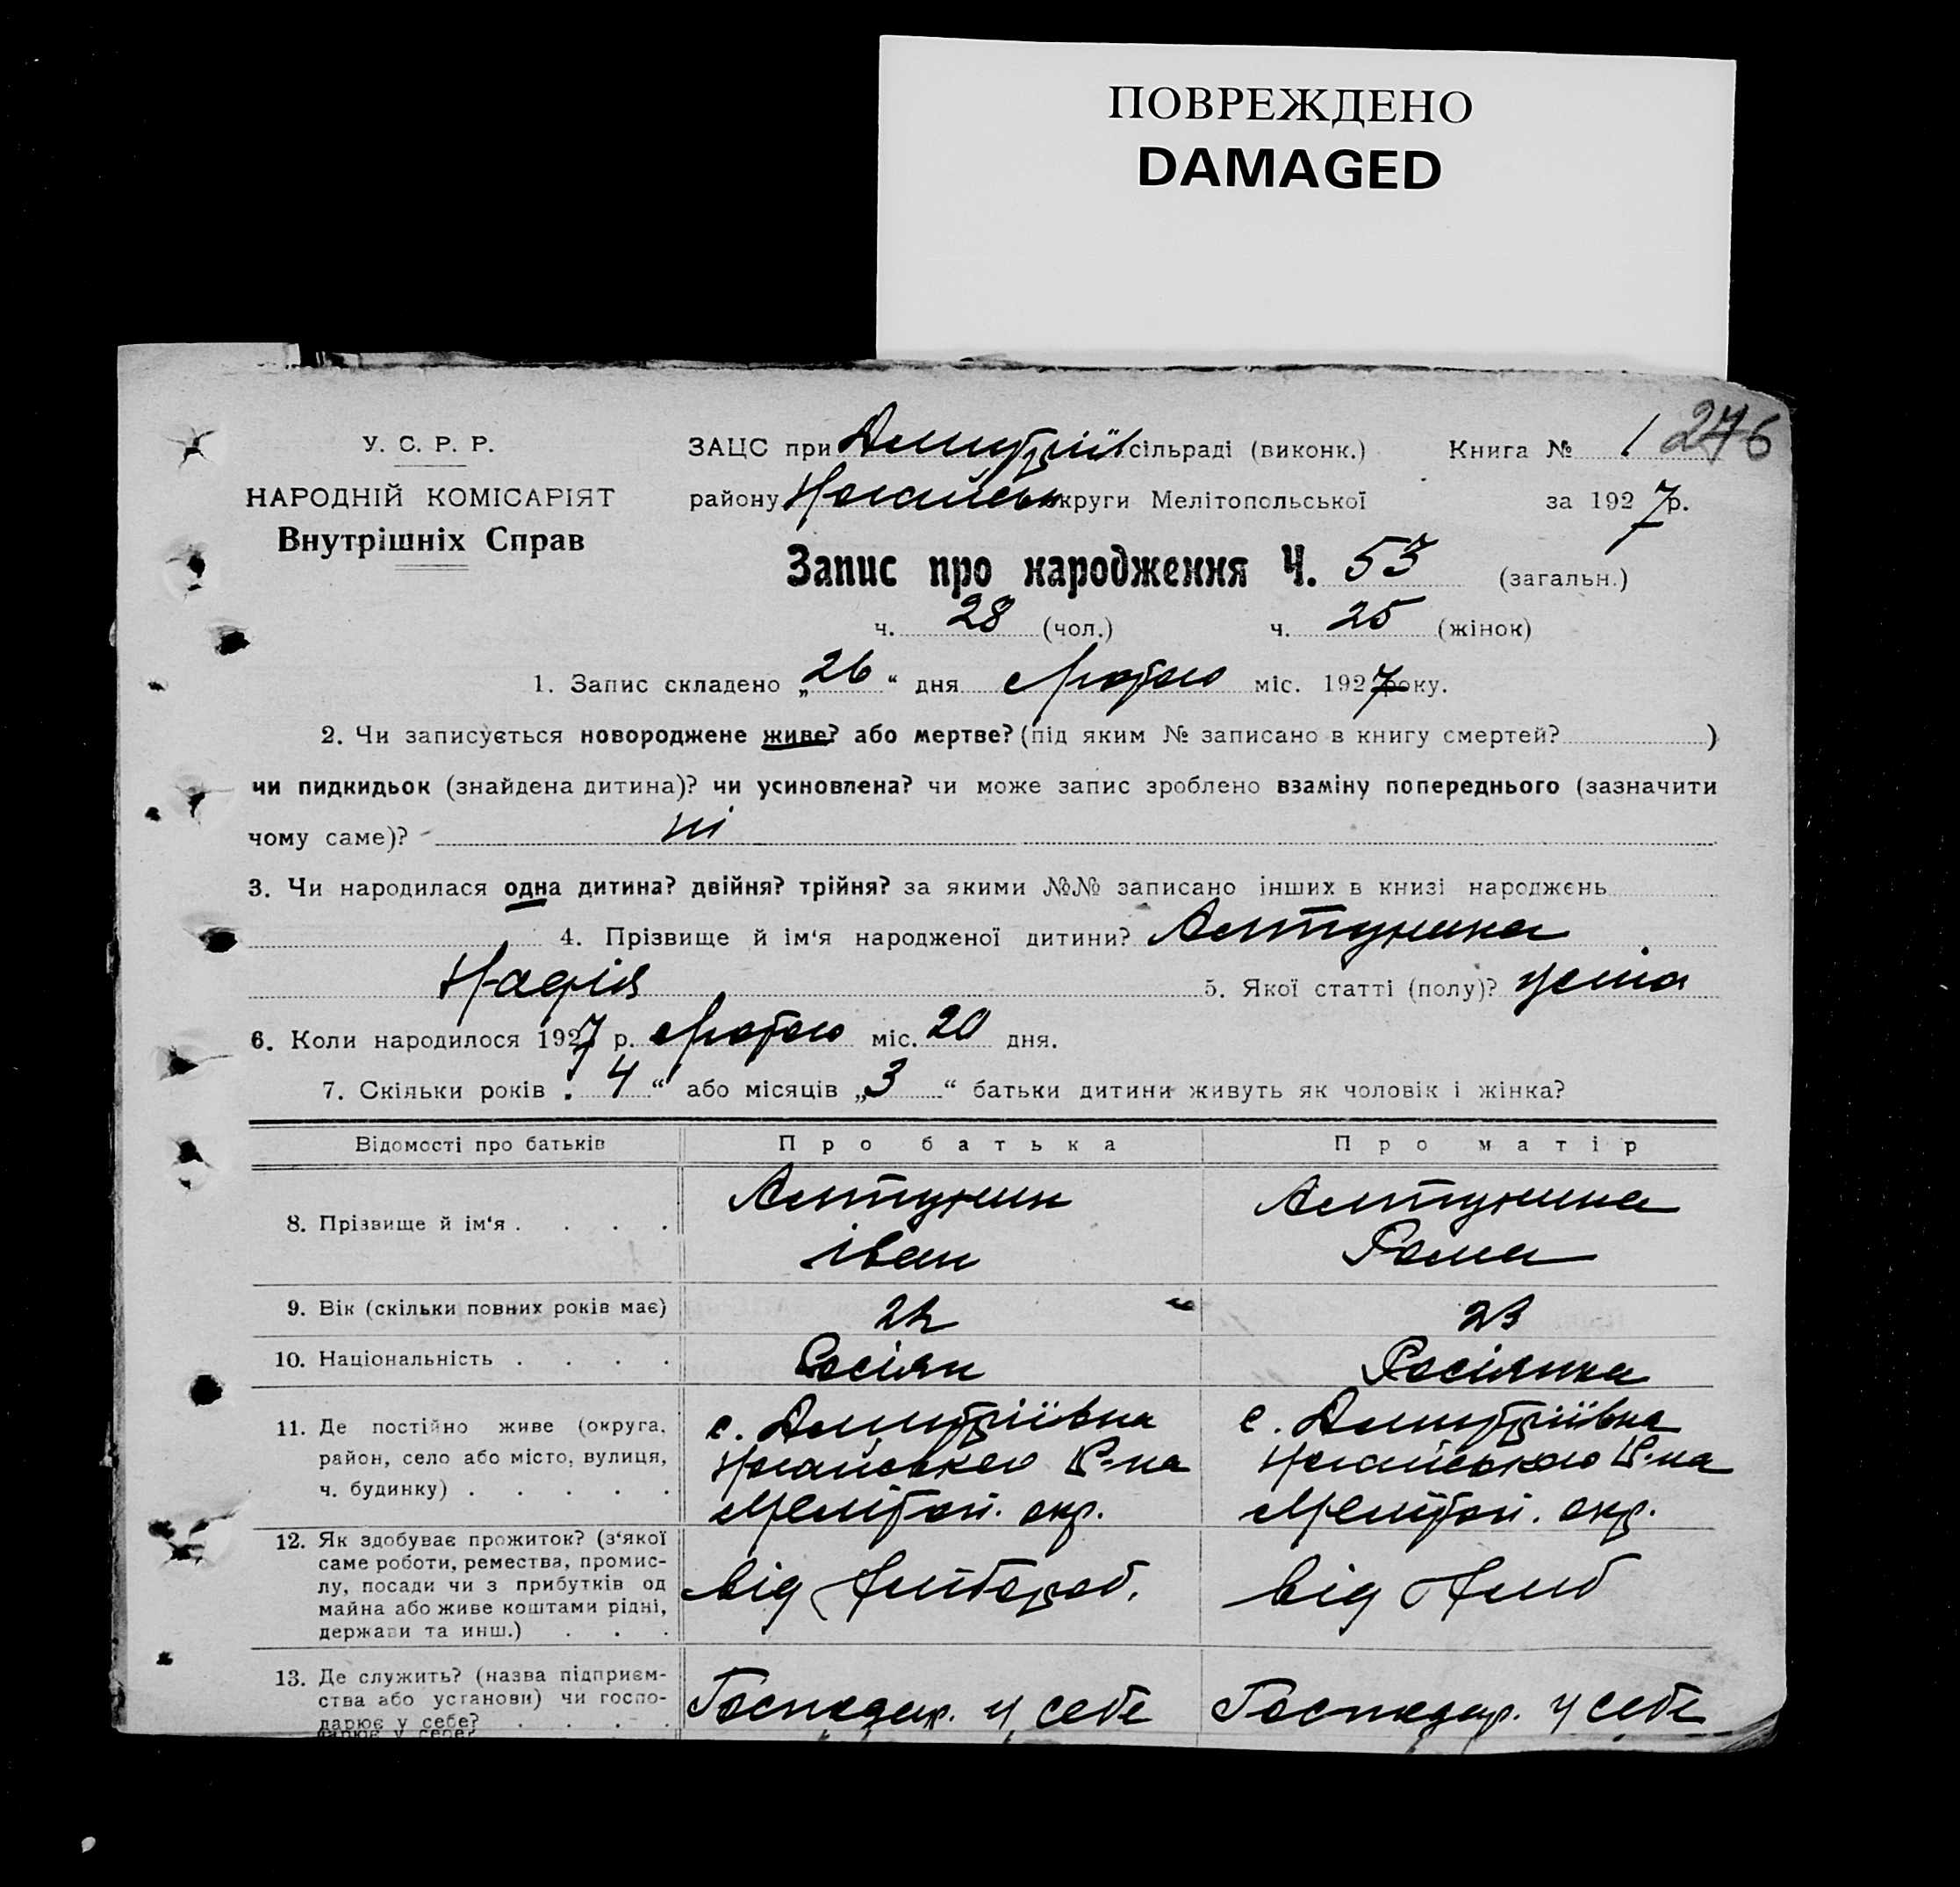 ПОВРЕЖДЕНО
DAMAGED
У. С. Р. Р.
НАРОДНІЙ КОМІСАРІЯТ
Внутрішніх Справ
ЗАЦС при Дмитріїв. сільраді (виконк.) Книга № 1 276
району Ногайськ округи Мелітопольської за 1927 р.
Запис про народження Ч. 53 (загальн.)
ч. 28 (чол.) ч. 25 (жінок)
1. Запис складено „26“ дня Лютого міс. 1927 року.
2. Чи записується новороджене живе? або мертве? (під яким № записано в книгу смертей? )
чи пидкидьок (знайдена дитина)? чи усиновлена? чи може запис зроблено взаміну попереднього (зазначити
чому саме)? ні
3. Чи народилася одна дитина? двійня? трійня? за якими №№ записано інших в книзі народжень
4. Прізвище й ім‘я народженої дитини? Алтунина
Надія 5. Якої статті (полу)? жіноч
6. Коли народилося 1927 р. Лютого міс. 20 дня.
7. Скільки років „4“ або місяців „3“ батьки дитини живуть як чоловік і жінка?
Відомості про батьків Про батька Про матір
8. Прізвище й ім‘я . . . . Алтунин Алтунина
Іван
9. Вік (скільки повних років має) 22 23
10. Національність . . . . Росіян Росіянка
11. Де постійно живе (округа, с. Дмитріївка с. Дмитріївка
район, село або місто, вулиця, Ногайського Р-на Ногайського Р-на
ч. будинку) . . . . . Мелітоп. окр. Мелітоп. окр.
12. Як здобуває прожиток? (з‘якої
саме роботи, ремества, промис-
лу, посади чи з прибутків од від від
майна або живе коштами рідні,
держави та инш.) . . .
13. Де служить? (назва підприєм-
ства або установи) чи госпо- Господар. у себе Господар. у себе
дарює у себе? . . . .